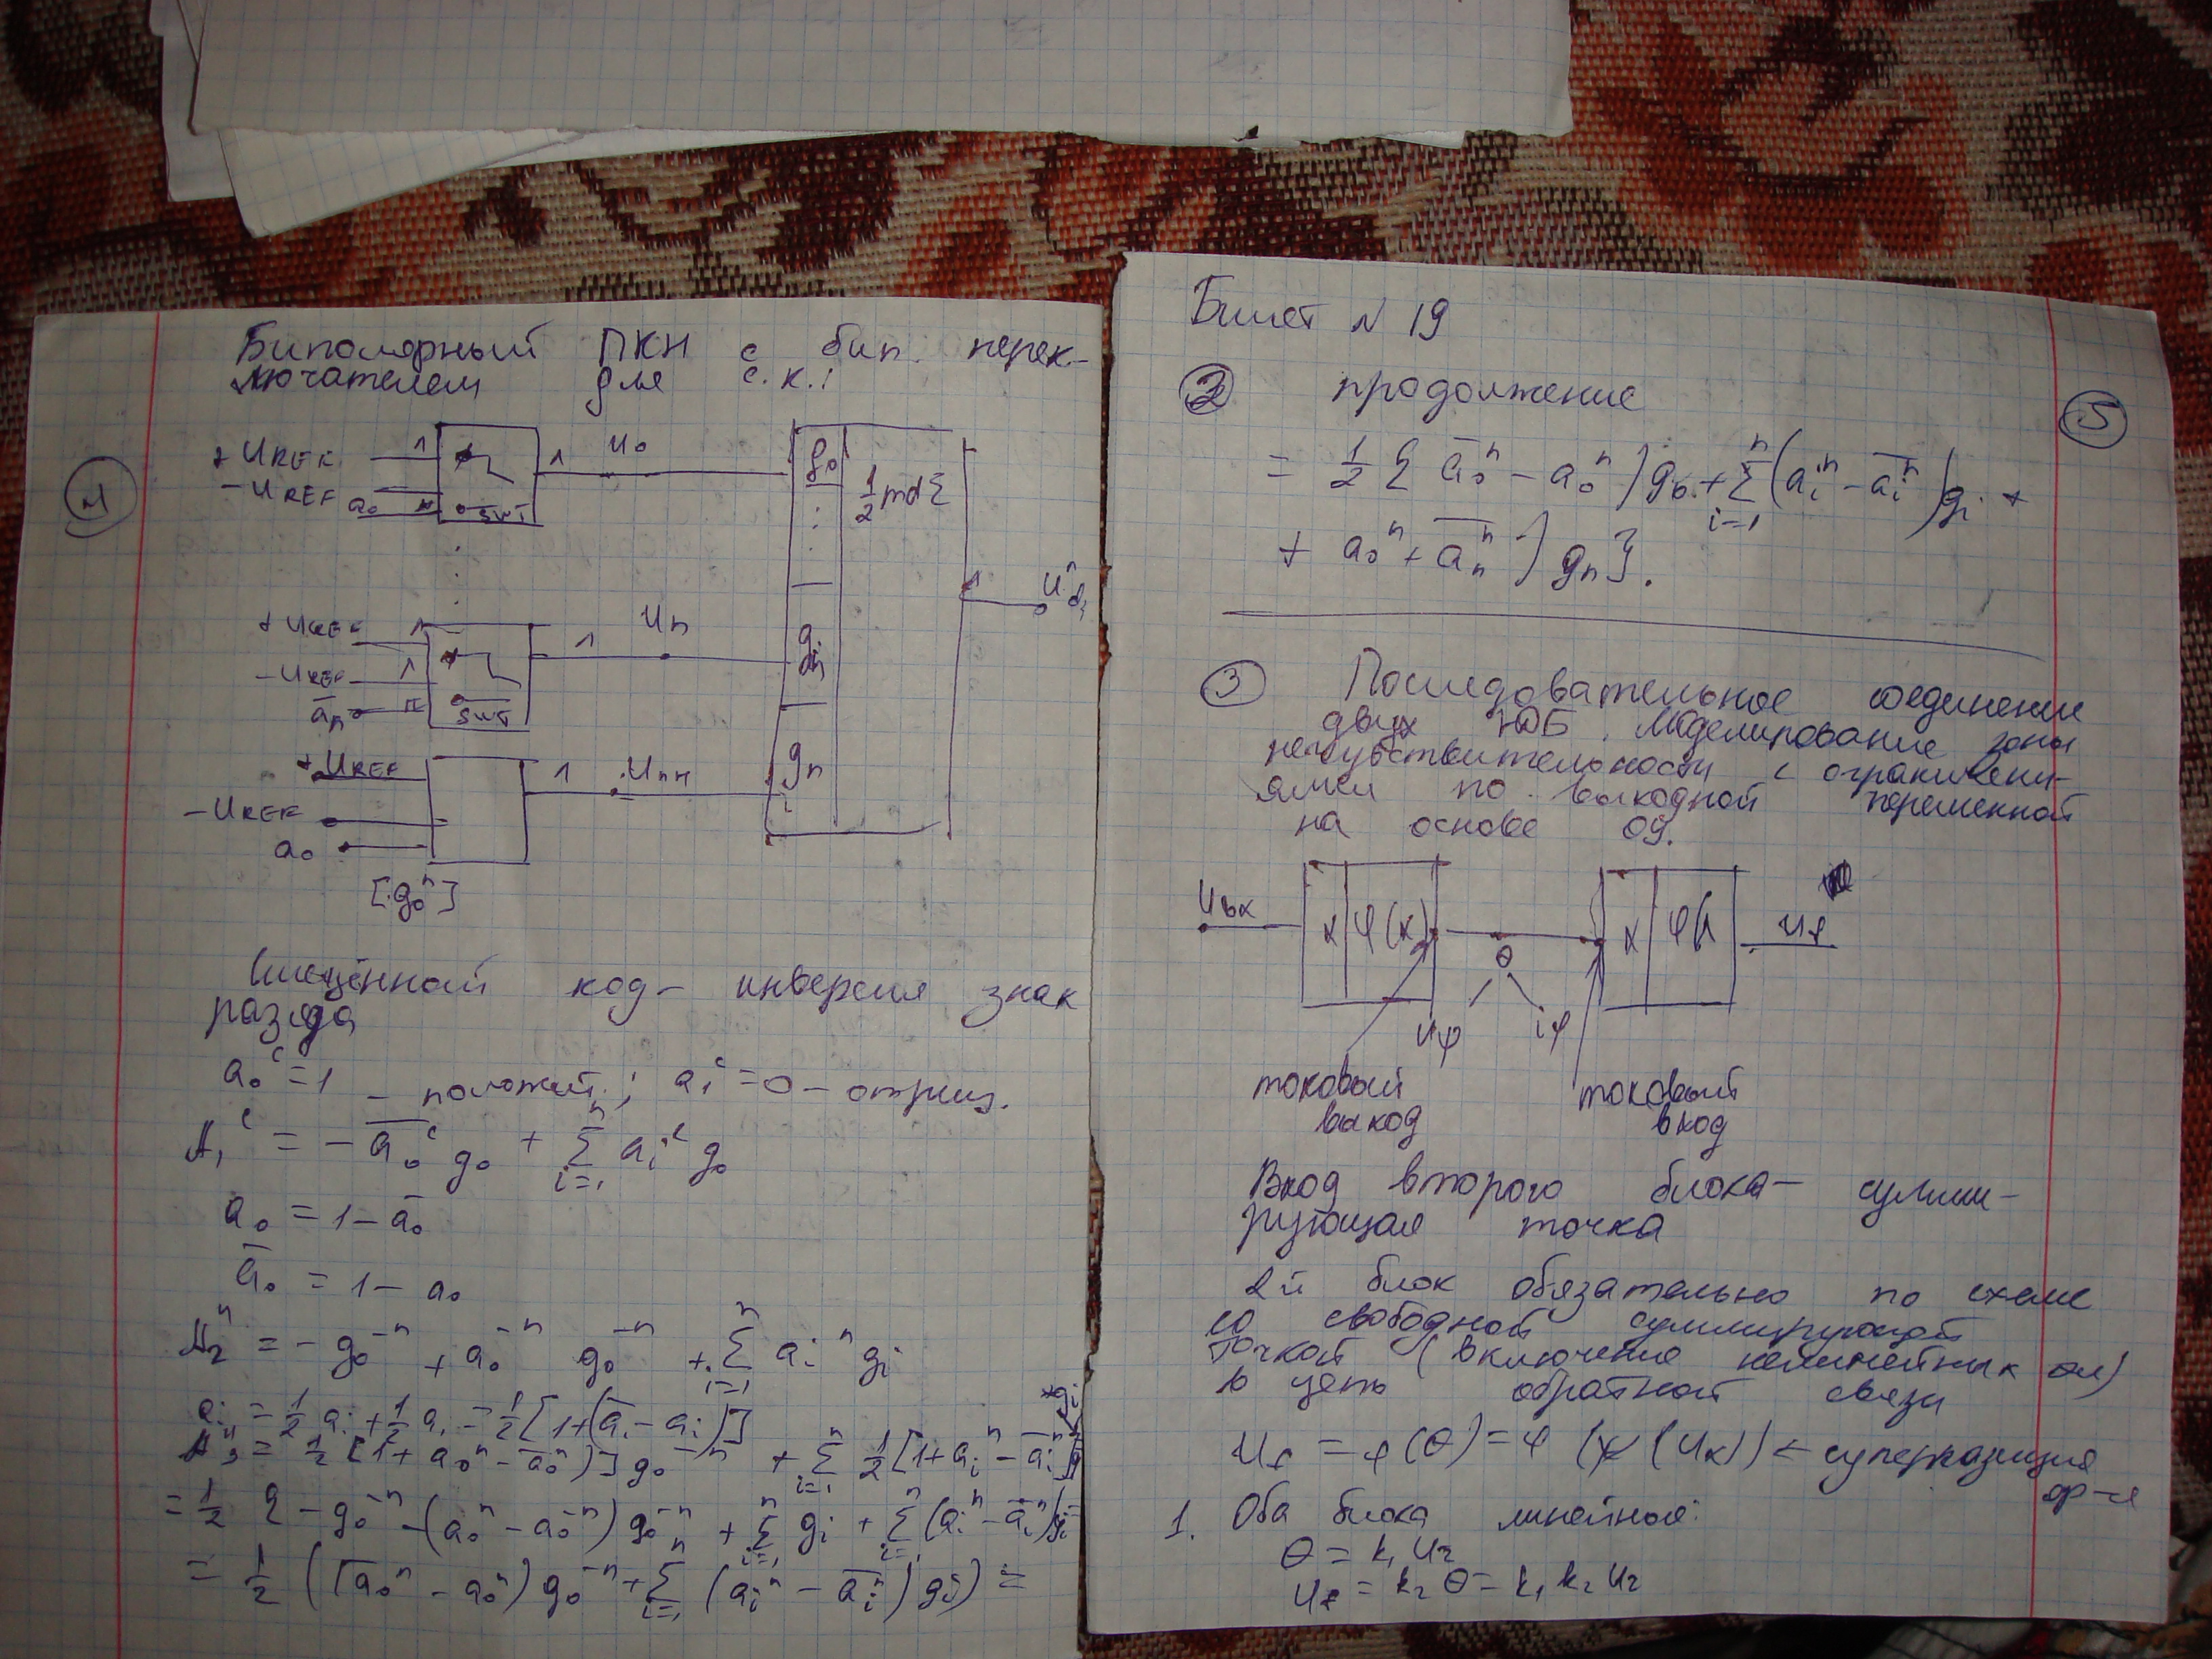 Биполярный ПКН с бип. перек-
лючателем для с.к.:
4
+ UREF 1 1 u0 g0 1/2 md Σ
- UREF
a0 SWT
+ UREF 1 1 Un
- UREF 1
ān SWT
+ UREF 1 Uпн gn
- UREF
a0
[g0ⁿ]
Смещённый код - инверсия знак
разряда
a0ᶜ = 1 - положит.; a1ᶜ = 0 - отриц.
A1ᶜ = - ā0ᶜ g0 + Σ(i=1..n) aiᶜ g0
a0 = 1 - ā0
ā0 = 1 - a0
A2ⁿ = - g0⁻ⁿ + a0⁻ⁿ g0⁻ⁿ + Σ(i=1..n) aiⁿ gi
ai = 1/2 ai + 1/2 a. = 1/2 [1 + (ā. - ai)]
= 1/2 [1 + a0ⁿ - ā0ⁿ)] g0⁻ⁿ + Σ(i=1..n) 1/2 [1 + aiⁿ - āiⁿ]
= 1/2 { - g0⁻ⁿ - (a0ⁿ - a0⁻ⁿ) g0⁻ⁿ + Σ(i=1..n) gi + Σ(i=1..n) (aiⁿ - āiⁿ) gi =
= 1/2 ((ā0ⁿ - a0ⁿ) g0⁻ⁿ + Σ(i=1..n) (aiⁿ - āiⁿ) gi) =
Билет N 19
2 продолжение
5
= 1/2 { ā0ⁿ - a0ⁿ) g0 + Σ(i=1..n) (aiⁿ - āiⁿ) gi +
+ a0ⁿ + ānⁿ) gn }.
3 Последовательное соединение
двух Моделирование зоны
нечувствительности с ограничени-
ями по выходной переменной
на основе ОУ.
Uвх X φ(X) θ X φ( Uf
Uφ iφ
токовый токовый
выход вход
Вход второго блока - сумми-
рующая точка
2й блок обязательно по схеме
со свободной суммирующей
точкой (включение нелинейных эл)
в цепь обратной связи
Uf = φ(θ) = φ (ψ (Ux)) ← суперпозиция
ф-я
1. Оба блока линейные:
θ = k1 U2
Uf = k2 θ = k1 k2 U2